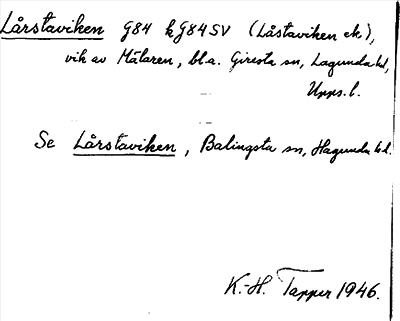 Lårstaviken G84 kG84SV (Låstaviken ek),
vik av Mälaren, bl.a. Giresta sn, Lagunda hd,
Upps. l.
Se Lårstaviken, Balingsta sn, Hagunda hd.
K.-H. Tapper 1946.